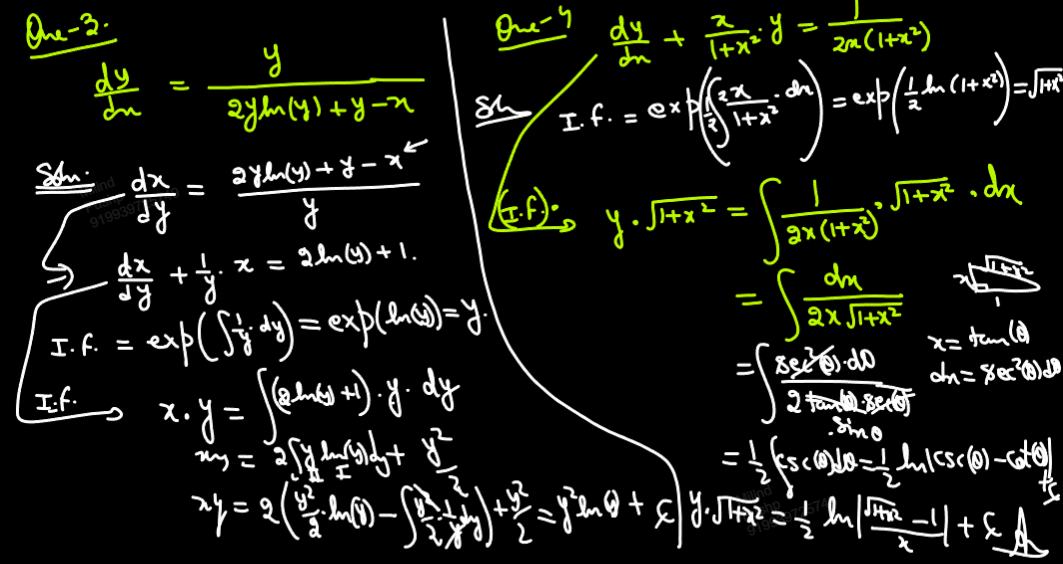 Que-3.
dy/dx = y/(2y ln(y) + y - x)
Soln. dx/dy = (2y ln(y) + y - x)/y
dx/dy + 1/y · x = 2 ln(y) + 1.
I.f. = exp(∫ 1/y · dy) = exp(ln(y)) = y.
I.f. x · y = ∫ (2 ln(y) + 1) · y · dy
xy = 2 ∫ y ln(y) dy + y²/2
II I
xy = 2 (y²/2 · ln(y) - ∫ y²/2 · 1/y dy) + y²/2 = y² ln(y) + c
Que-4 dy/dx + x/(1+x²) · y = 1/(2x(1+x²))
Sln I.f. = exp(1/2 ∫ 2x/(1+x²) · dx) = exp(1/2 ln(1+x²)) = √(1+x²)
(I.f). y · √(1+x²) = ∫ 1/(2x(1+x²)) · √(1+x²) · dx
= ∫ dx/(2x √(1+x²))
x √(1+x²) 1
x = tan(θ)
dx = sec²(θ) dθ
= ∫ sec²(θ) · dθ/(2 tan(θ) sec(θ))
sin θ
= 1/2 ∫ csc(θ) dθ = 1/2 ln|csc(θ) - cot(θ)| + c
y · √(1+x²) = 1/2 ln|(√(1+x²) - 1)/x| + c